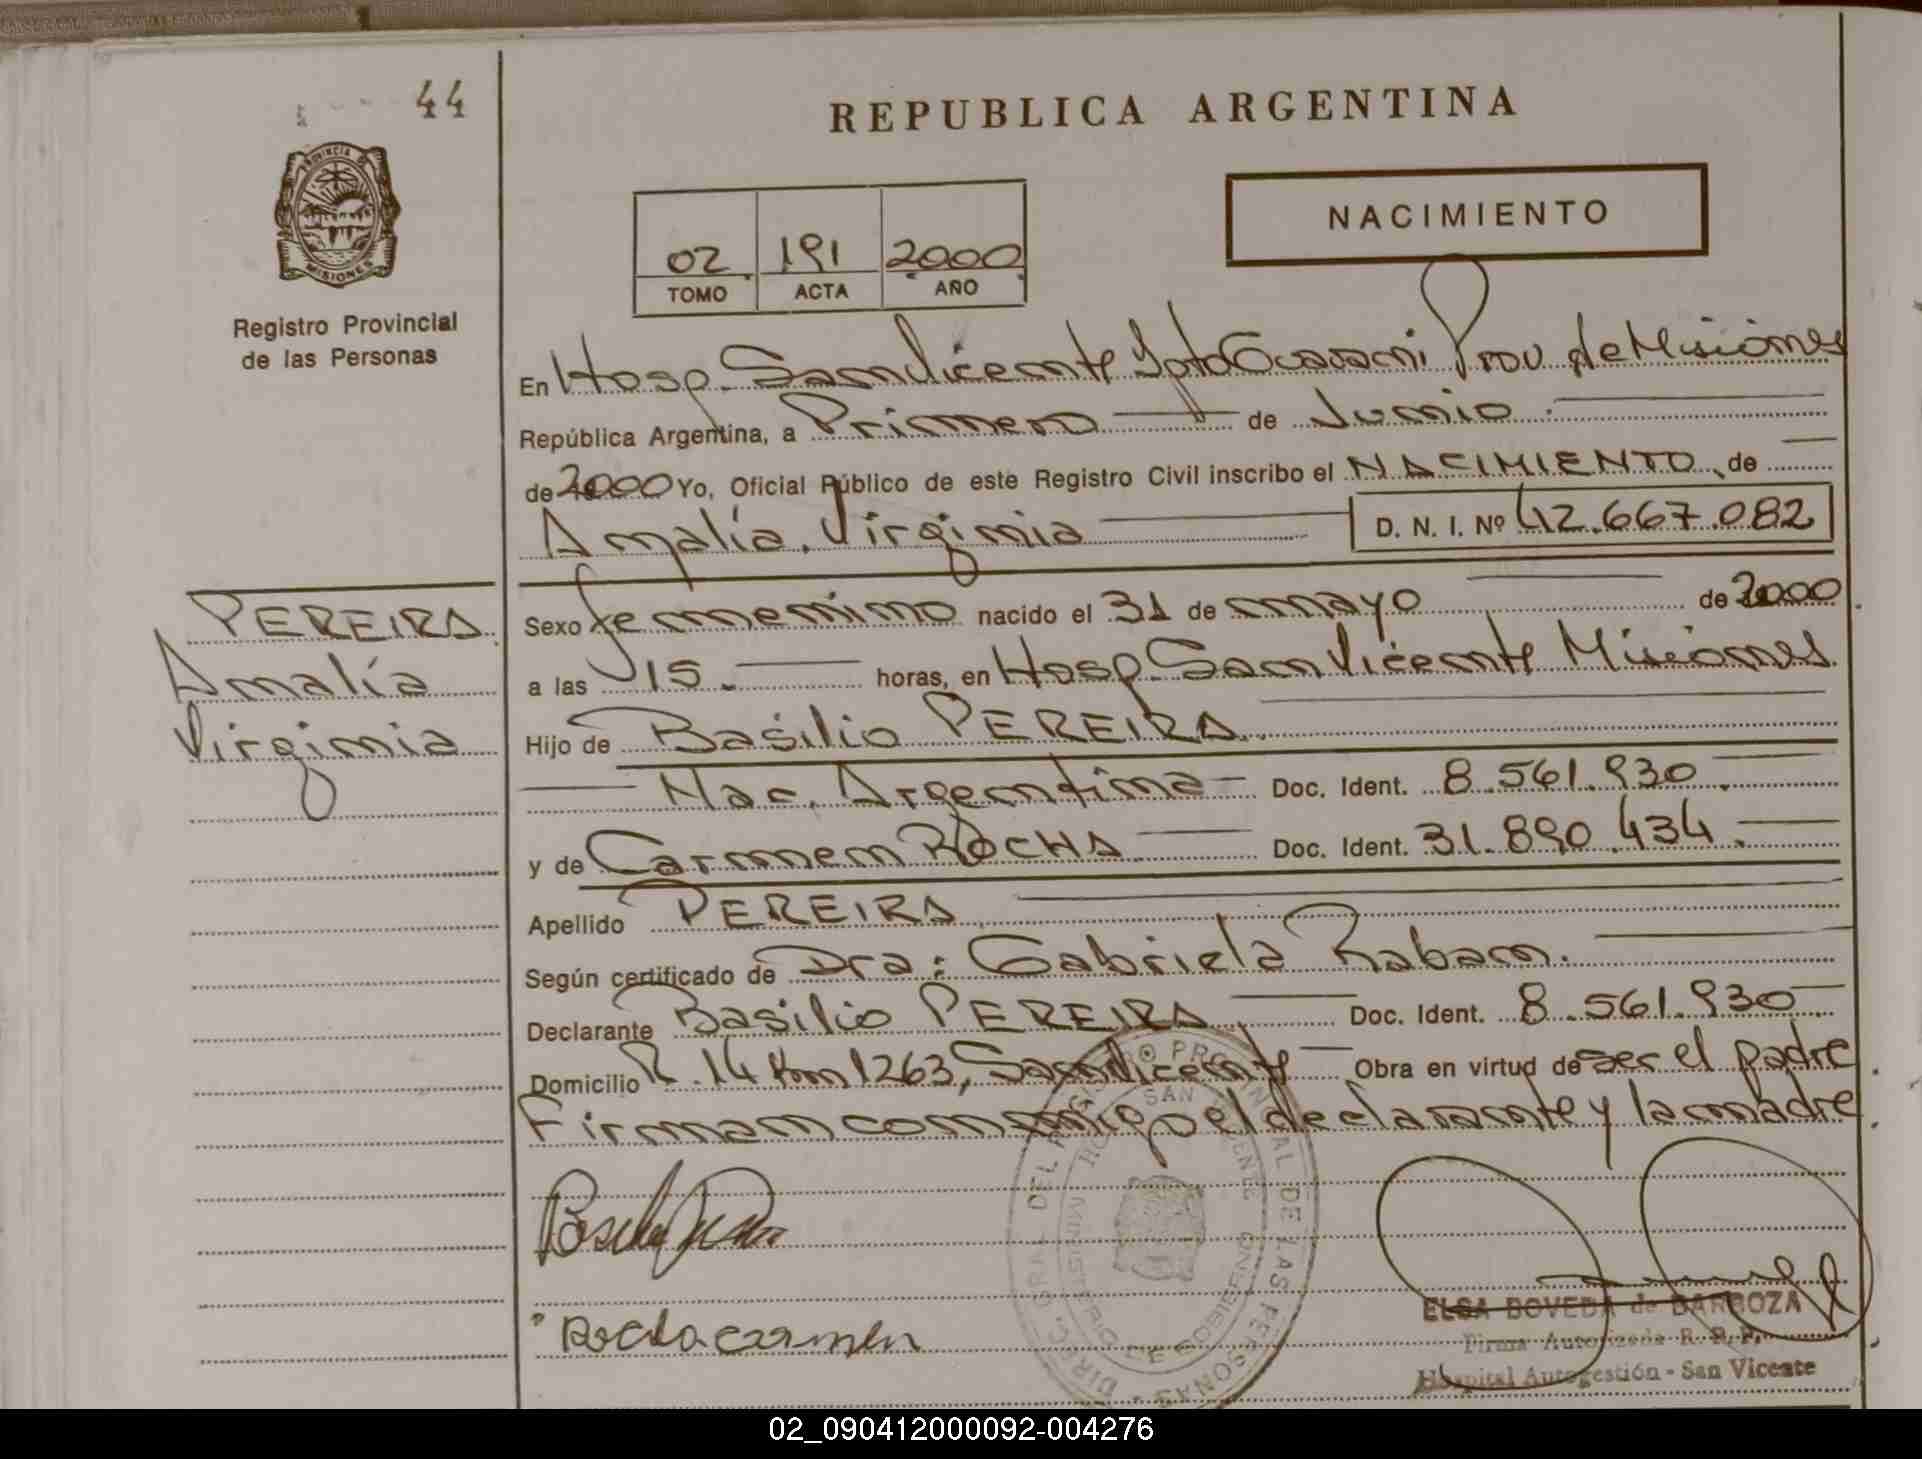 44
REPUBLICA ARGENTINA
NACIMIENTO
PROVINCIA DE
MISIONES
Registro Provincial
de las Personas
02 191 2000
TOMO ACTA AÑO
En Hosp. San Vicente Dpto Guarani Prov. de Misiones
República Argentina, a Primero de Junio
de 2000 Yo, Oficial Público de este Registro Civil inscribo el NACIMIENTO de
Amalía Virginia D. N. I. Nº 42.667.082
PEREIRA
Amalía
Virginia
Sexo femenino nacido el 31 de mayo de 2000
a las 15 horas, en Hosp. San Vicente Misiones
Hijo de Basilio PEREIRA
Nac. Argentina Doc. Ident. 8.561.930
y de Carmen ROCHA Doc. Ident. 31.890.434
Apellido PEREIRA
Según certificado de Dra: Gabriela Raban.
Declarante Basilio PEREIRA Doc. Ident. 8.561.930
Domicilio R. 14 Km 1263, San Vicente Obra en virtud de ser el padre
Firman conmigo el declarante y la madre
DIREC. GRAL. DEL REGISTRO PROVINCIAL DE LAS PERSONAS
SAN VICENTE
MINISTERIO DE GOBIERNO
Rocha carmen
ELSA BOVEDA de BARBOZA
Firma Autorizada R. P. P.
Hospital Autogestión - San Vicente
02_090412000092-004276